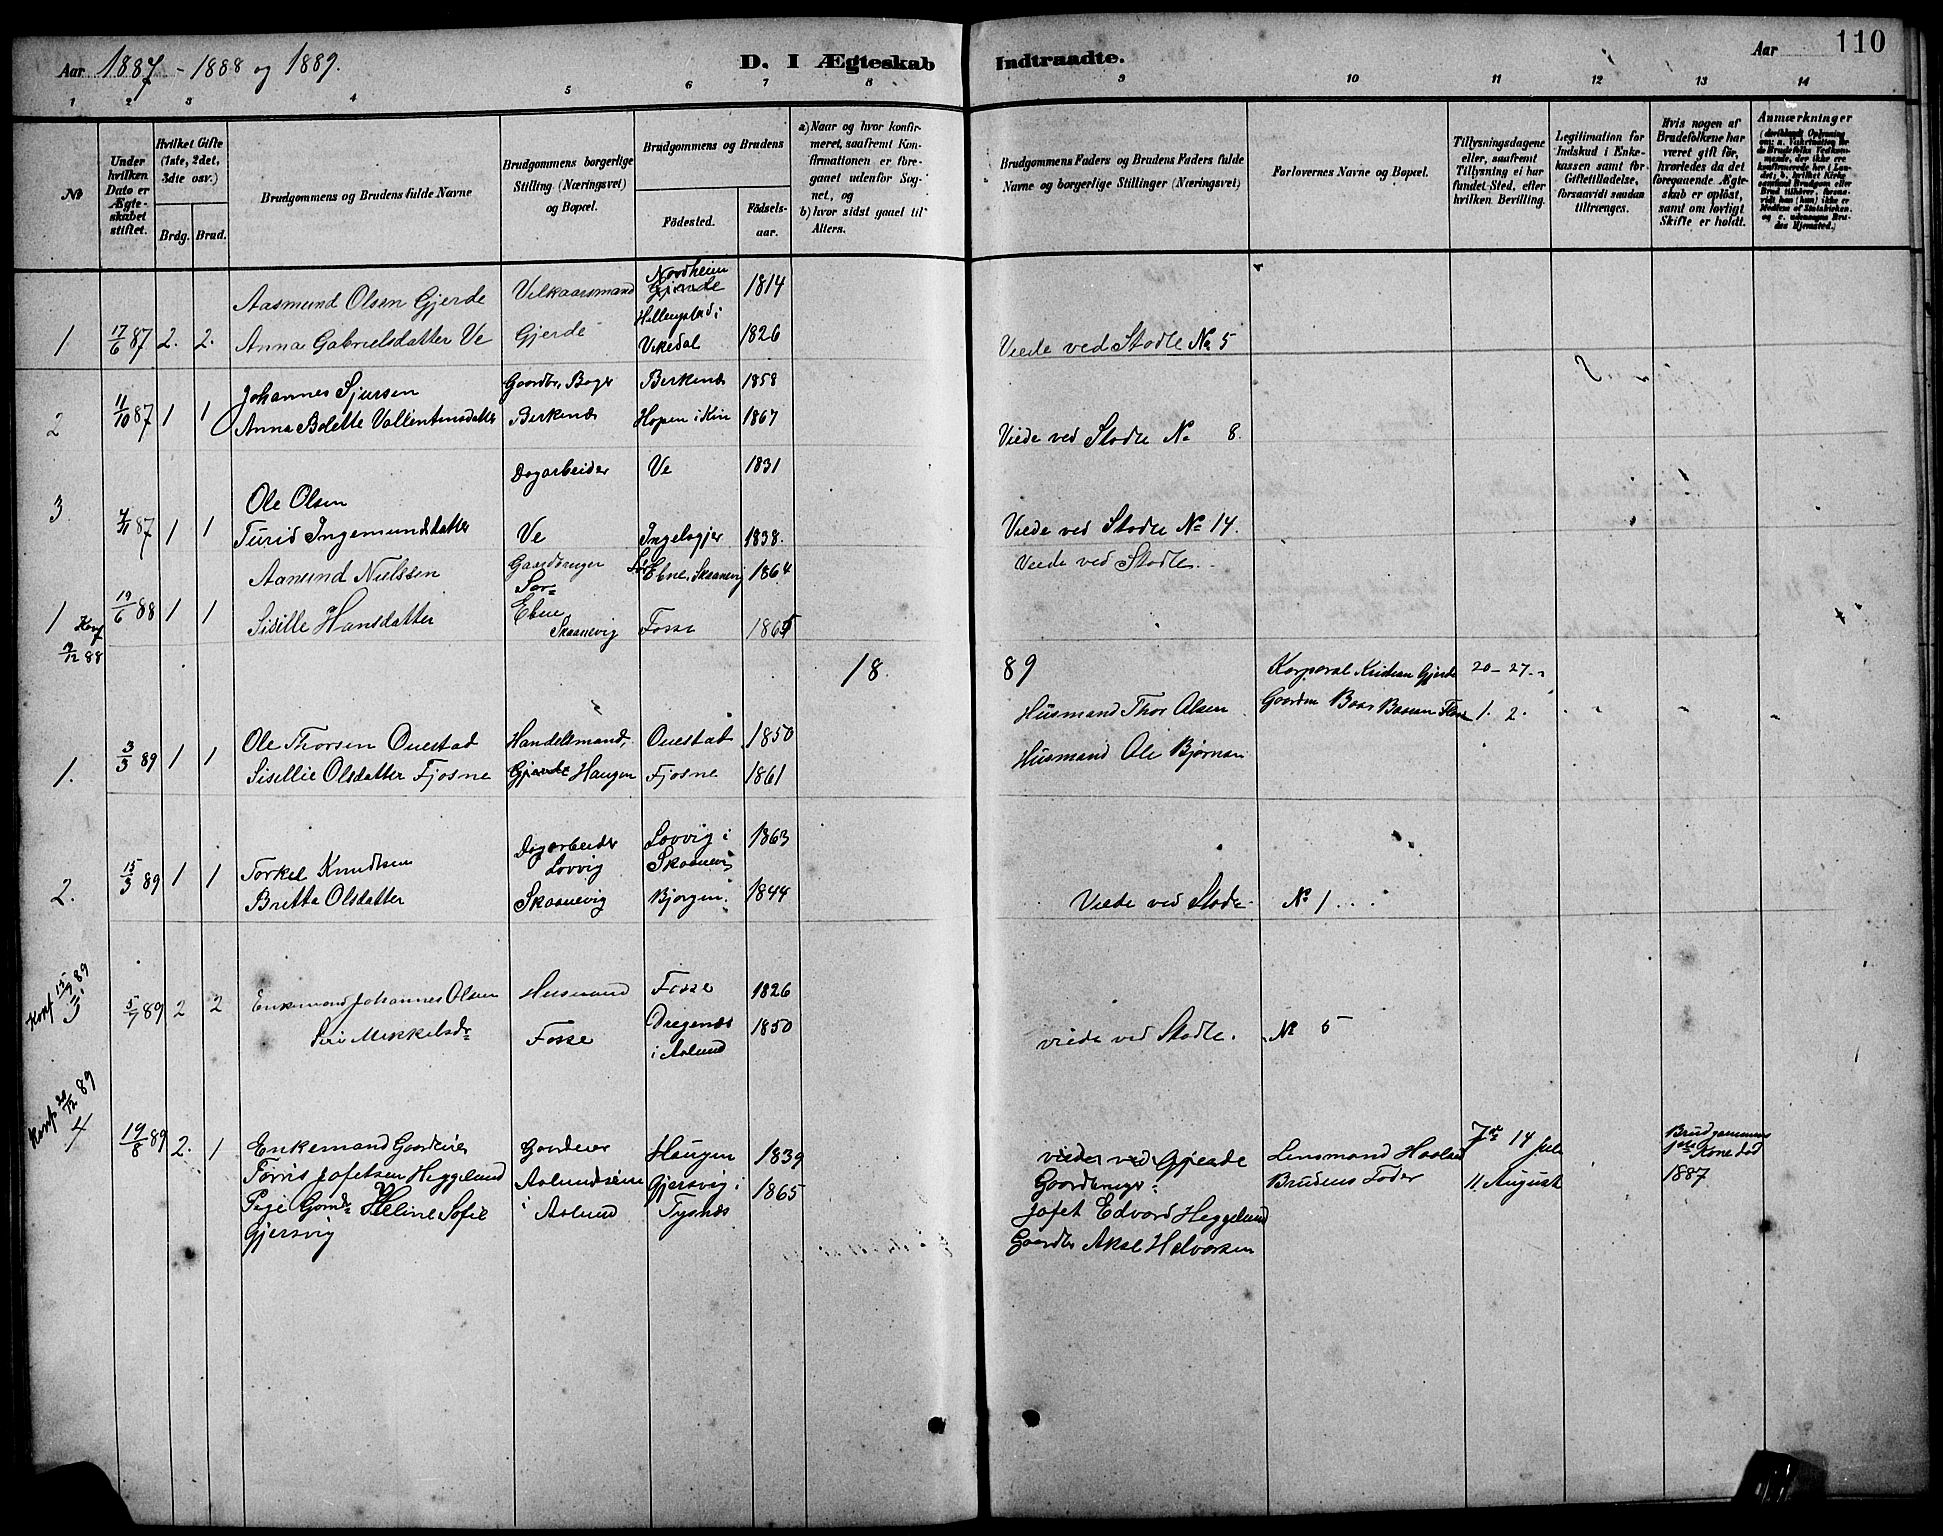 Aar 1887 - 1888 og 1889.
D. I Ægteskab Indtraadte.
Aar 110
1 2 3 4 5 6 7 8 9 10 11 12 13 14
No
Under hvilken Dato er Ægteskabet stiftet.
Hvilket Gifte (1ste, 2det, 3die osv.)
Brdg. Brud.
Brudgommens og Brudens fulde Navne
Brudgommens borgerlige Stilling (Næringsvei) og Bopæl.
Brudgommens og Brudens
Fødested.
Fødselsaar.
a) Naar og hvor konfirmeret, saafremt Konfirmationen er foregaaet udenfor Sognet, og
b) hvor sidst gaaet til Alters.
Brudgommens Faders og Brudens Faders fulde Navne og borgerlige Stillinger (Næringsvei)
Forlovernes Navne og Bopæl.
Tillysningsdagene eller, saafremt Tillysning ei har fundet Sted, efter hvilken Bevilling.
Legitimation for Indskud i Enkekassen samt for Giftetilladelse, forsaavidt saadan tiltrænges.
Hvis nogen af Brudefolkene har været gift før, hvorledes da det foregaaende Ægteskab er opløst, samt om lovligt Skifte er holdt.
Anmærkninger
Aasmund Olsen Gjerde Vilkaarsmand Nordheim Gjerde 1814
1 17/6 87 2. 2. Anna Gabrielsdatter Ve Gjerde Hellengstad i Vikedal 1826 Viede ved Stodle No 5
Johannes Sjursen Gaardbr. Bager Birkenæs 1858
2 11/10 87 1 1 Anna Bolette Vallentinsdatter Birkenæs Hopen i Kin 1867 Viede ved Stodle No 8.
Dagarbeider Ve 1831
Ole Olsen
3 7/11 87 1 1 Turid Ingemundsdatter Ve Ingelsgjer 1838. Viede ved Stodle No 14.
Aamund Nielssen Gaardbruger Sør Ebne, Skaanevig 1864 Viede ved Stodle.
1 19/6 88 1 1 Sør-Ebne
Konf 7/12 88 Sisille Hansdatter Skaanevig Fosse 1865
18. 89 Korporal Kristian Gjerde 20 - 27. -
Husmand Thor Olsen Gaardm Baar 1. 2.
1. 3/3 89 1 1 Ole Thorsen Ouestad Handelsmand, Ouestad 1850
Sisellie Olsdatter Fjosne Gjerde Haugen Fjosne 1861 Husmand Ole Bjørnsen
Dagarbeider Lovvig i 1863
2. 15/3 89 1 1 Torkel Knudtsen Lovvig Skaanevig
Britta Olsdatter Skaanevig Bjorgen. 1844 Viede ved Stodle No 1 . . .
Konf 15/9 89
3 5/7 89 2 2 Enkemand Johannes Olsen Husmand Fosse 1826
Siri Mikkelsdr Fosse Dregenæs i Aolund 1850 viede ved Stodle. No 5
Konf 20/12 89
4 19/8 89 2. 1 Enkemand Gaardeier Gaardeier Haugen 1839 viede ved Gjerde Lensmand Haaland 7de 14 Juli Brudgommens
Tørris Jofetsen Heggelund Aolundseim Gjersvig i 1865 Gaardbruger Brudens Fader 11 August Kone død
Pige Heline Sofie i Aolund Tysnæs Jofet Edvard Heggelund 1887
Gjersvig Gaardbr Aksel Halvorsen